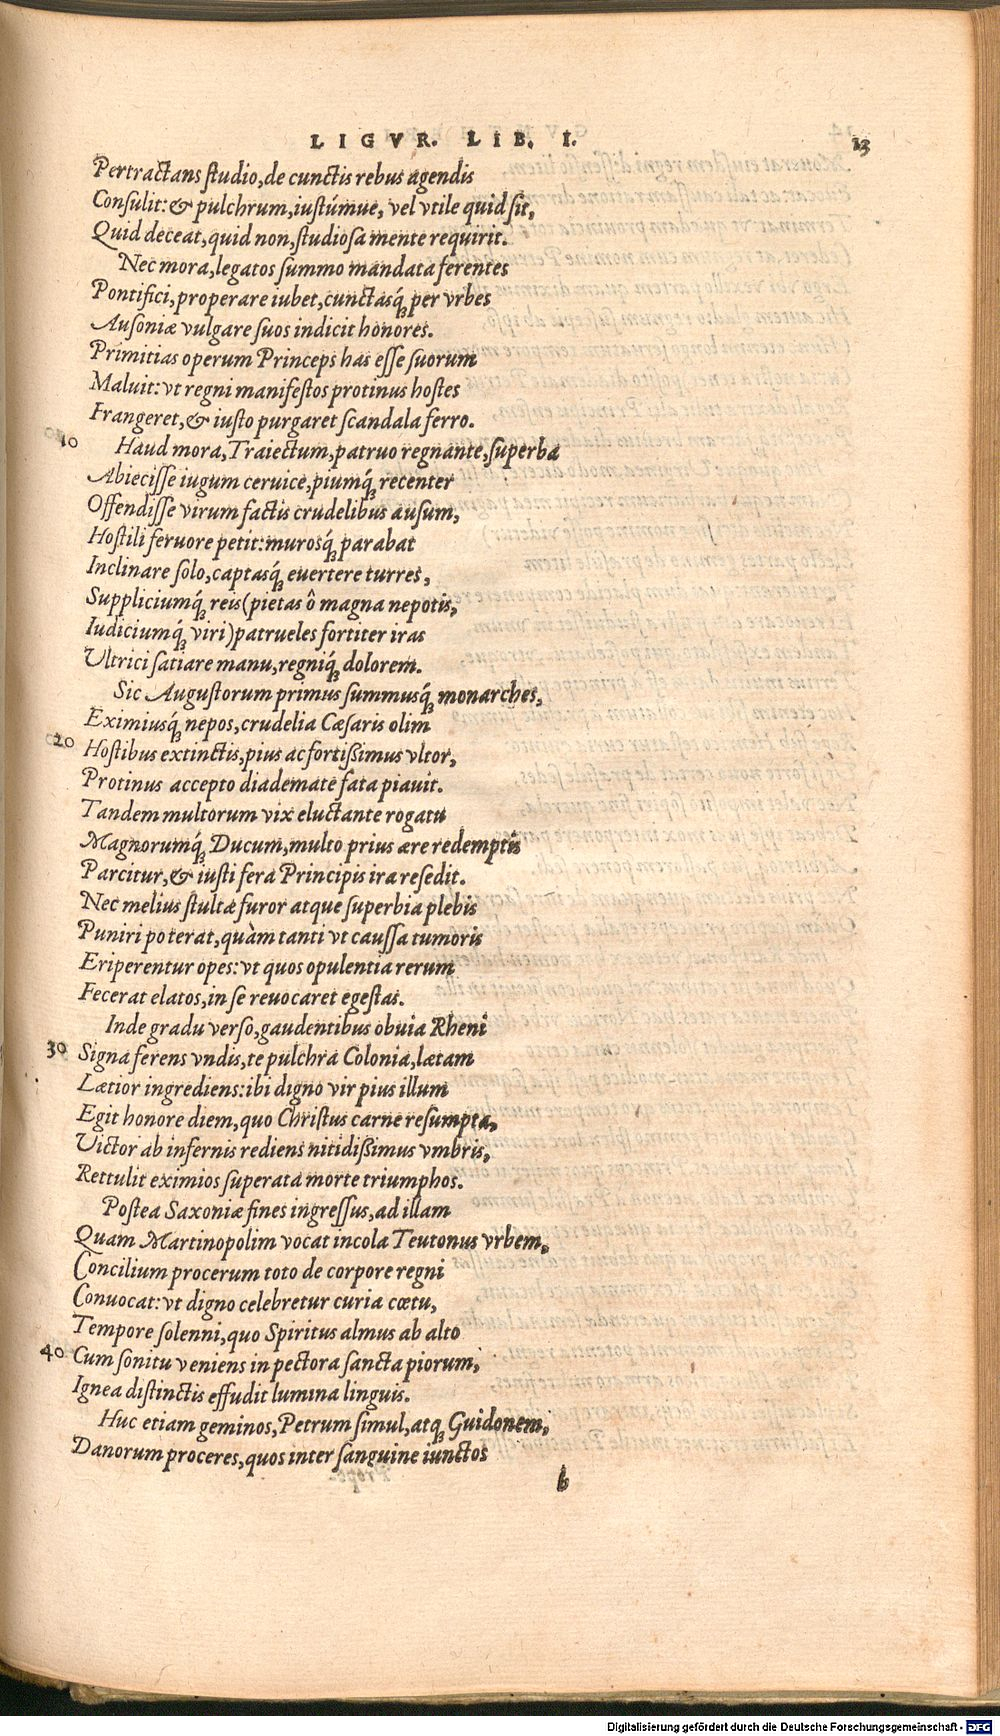 LIGVR. LIB. I. 13
Pertractans studio, de cunctis rebus agendis
Consulit: & pulchrum, iustúmue, vel vtile quid sit,
Quid deceat, quid non, studiosa mente requirit.
Nec mora, legatos summo mandata ferentes
Pontifici, properare iubet, cunctasq́; per vrbes
Ausoniæ vulgare suos indicit honores.
Primitias operum Princeps has esse suorum
Maluit: vt regni manifestos protinus hostes
Frangeret, & iusto purgaret scandala ferro.
10 Haud mora, Traiectum, patruo regnante, superba
Abiecisse iugum ceruice, piumq́; recenter
Offendisse virum factis crudelibus ausum,
Hostili feruore petit: murosq́; parabat
Inclinare solo, captasq́; euertere turres,
Suppliciumq́; reis (pietas ô magna nepotis,
Iudiciumq́; viri) patrueles fortiter iras
Vltrici satiare manu, regniq́; dolorem.
Sic Augustorum primus summusq́; monarches,
Eximiusq́; nepos, crudelia Cæsaris olim
20 Hostibus extinctis, pius ac fortißimus vltor,
Protinus accepto diademate fata piauit.
Tandem multorum vix eluctante rogatu
Magnorumq́; Ducum, multo prius ære redemptis
Parcitur, & iusti fera Principis ira resedit.
Nec melius stultæ furor atque superbia plebis
Puniri poterat, quàm tanti vt caussa tumoris
Eriperentur opes: vt quos opulentia rerum
Fecerat elatos, in se reuocaret egestas.
Inde gradu verso, gaudentibus obuia Rheni
30 Signa ferens vndis, te pulchra Colonia, lætam
Lætior ingrediens: ibi digno vir pius illum
Egit honore diem, quo Christus carne resumpta,
Victor ab infernis rediens nitidißimus vmbris,
Rettulit eximios superata morte triumphos.
Postea Saxoniæ fines ingressus, ad illam
Quam Martinopolim vocat incola Teutonus vrbem,
Concilium procerum toto de corpore regni
Conuocat: vt digno celebretur curia cœtu,
Tempore solenni, quo Spiritus almus ab alto
40 Cum sonitu veniens in pectora sancta piorum,
Ignea distinctis effudit lumina linguis.
Huc etiam geminos, Petrum simul, atq; Guidonem,
Danorum proceres, quos inter sanguine iunctos
b
Digitalisierung gefördert durch die Deutsche Forschungsgemeinschaft - DFG